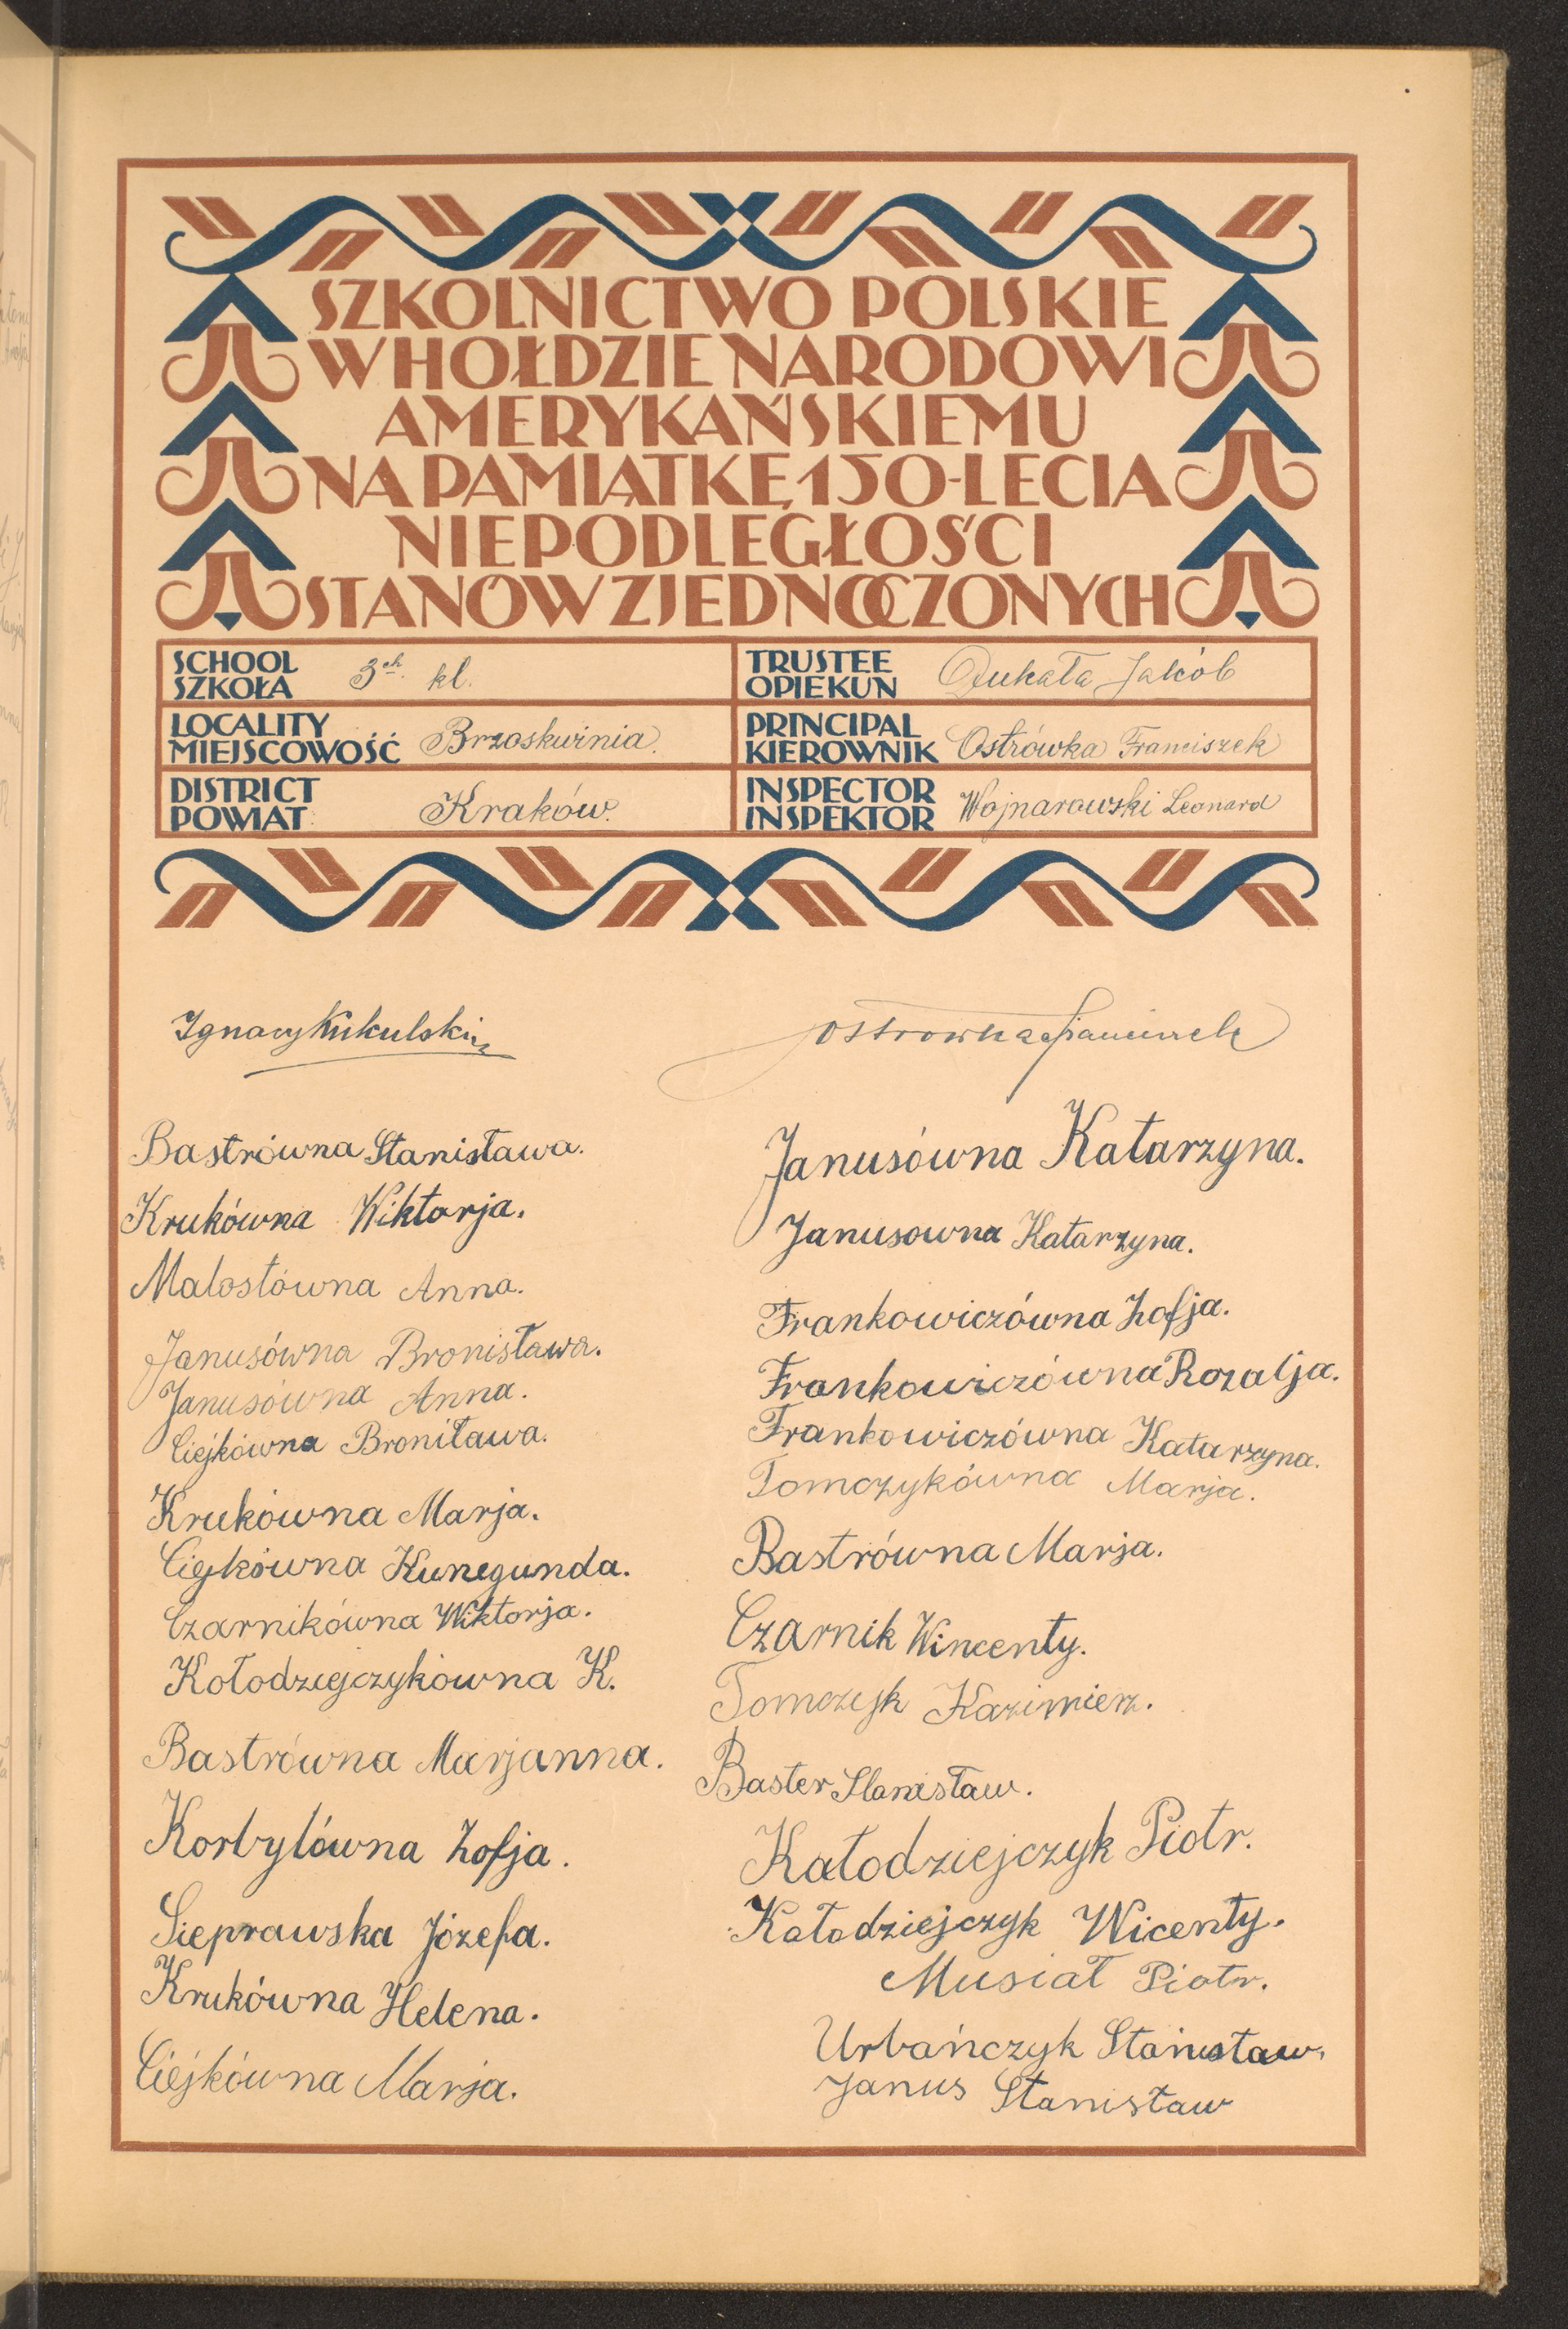 SZKOLNICTWO POLSKIE
W HOŁDZIE NARODOWI
AMERYKAŃSKIEMU
NA PAMIĄTKĘ 150-LECIA
NIEPODLEGŁOŚCI
STANÓW ZJEDNOCZONYCH
SCHOOL
SZKOŁA 3ch kl.
TRUSTEE
OPIEKUN Dukała Jakób
LOCALITY
MIEJSCOWOŚĆ Brzoskwinia.
PRINCIPAL
KIEROWNIK Ostrówka Franciszek
DISTRICT
POWIAT Kraków.
INSPECTOR
INSPEKTOR Wojnarowski Leonard
Ignacy Kukulski
Ostrowka Franciszek
Bastrówna Stanisława.
Krukówna Wiktorja.
Malostówna Anna.
Janusówna Bronisława.
Janusówna Anna.
Ciejkówna Broniława.
Krukówna Marja.
Ciejkówna Kunegunda.
Czarnikówna Wiktorja.
Kołodziejczykówna K.
Bastrówna Marjanna.
Korbylówna Zofja.
Sieprawska Józefa.
Krukówna Helena.
Ciejkówna Marja.
Janusówna Katarzyna.
Janusowna Katarzyna.
Frankowiczówna Zofja.
Frankowiczówna Rozalja.
Frankowiczówna Katarzyna.
Tomczykówna Marja.
Bastrówna Marja.
Czarnik Wincenty.
Tomczyk Kazimierz.
Baster Stanisław.
Kałodziejczyk Piotr.
Kołodziejczyk Wicenty.
Musiał Piotr.
Urbańczyk Stanisław.
Janus Stanisław